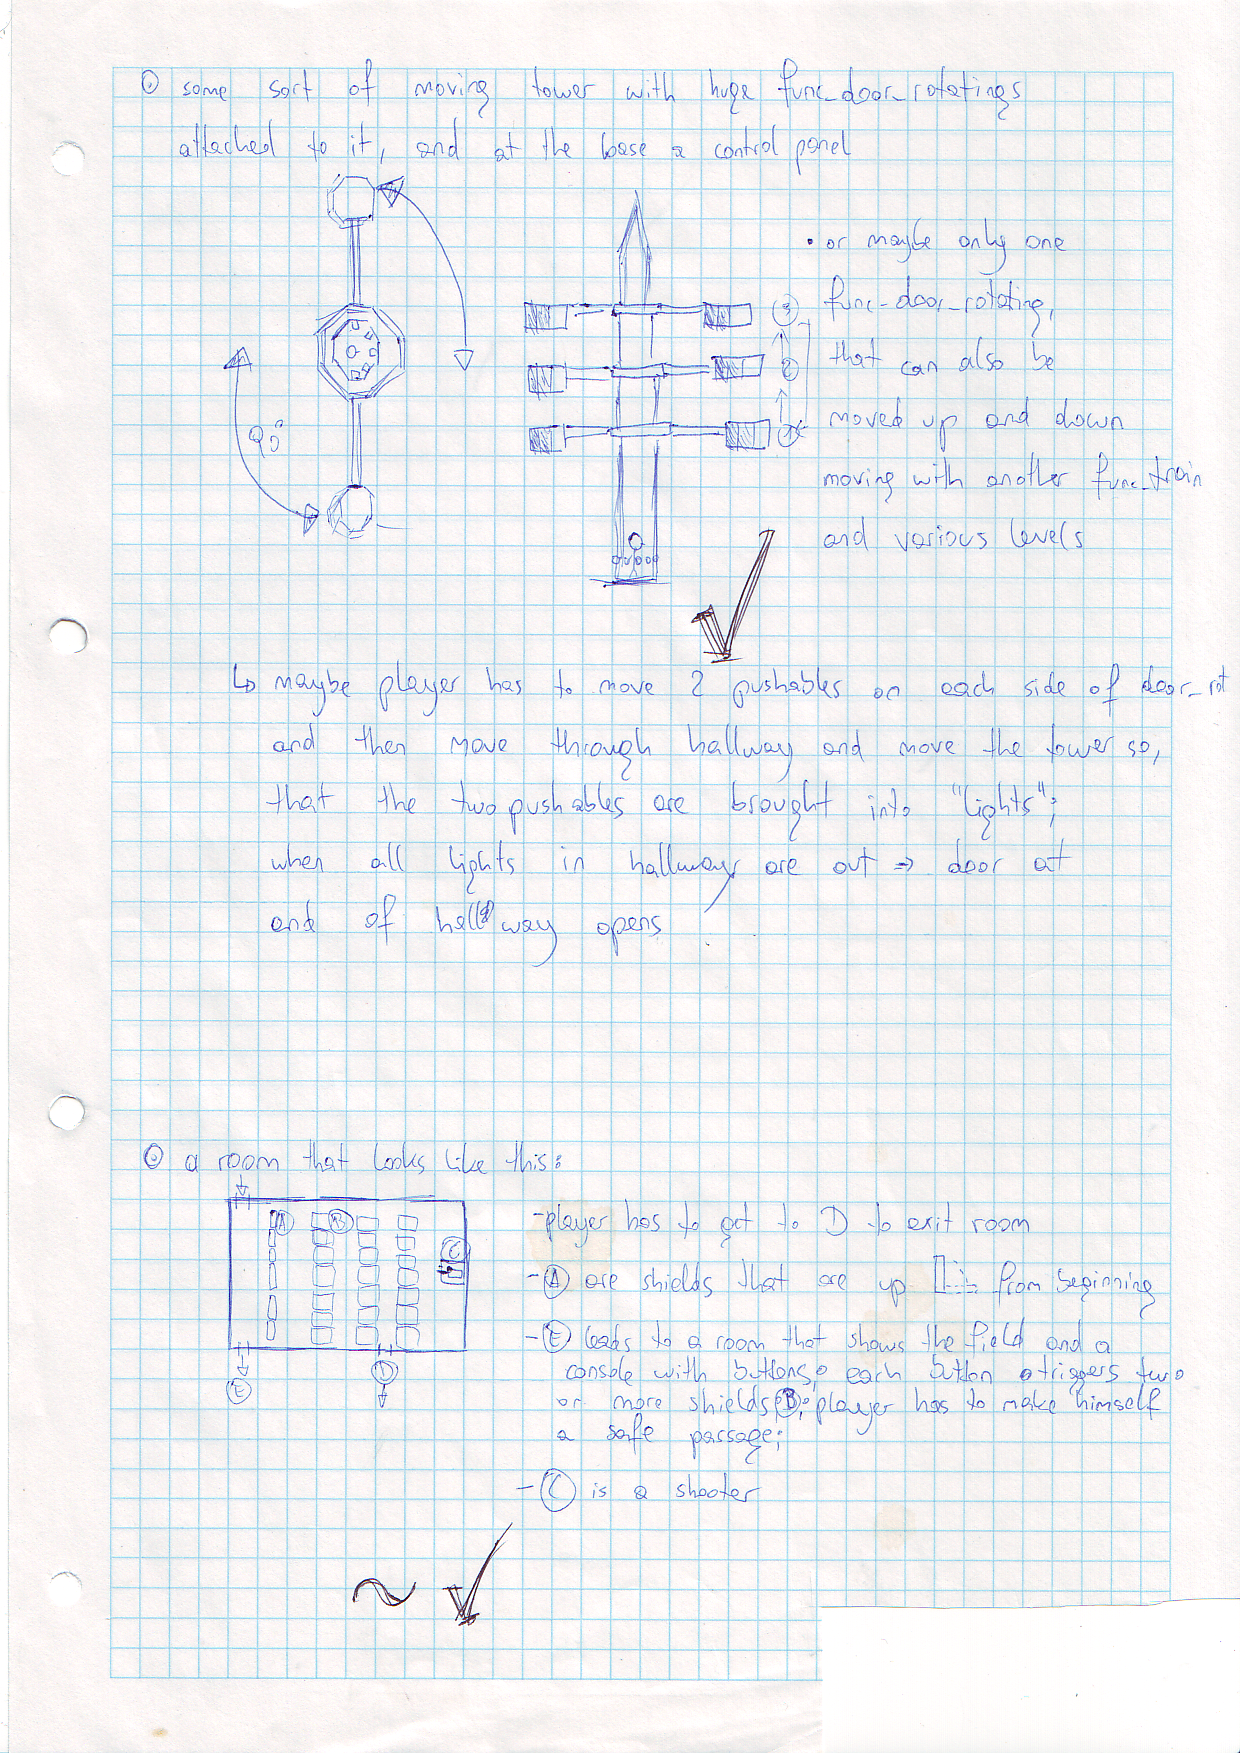 some sort of moving tower with huge func_door_rotatings
attached to it, and at the base a control panel
• or maybe only one
func-door_rotating,
that can also be
moved up and down
moving with another func_train
and various levels
90°
3
2
1
↳ maybe player has to move 2 pushables on each side of door_rot
and then move through hallway and move the tower so,
that the two pushables are brought into "lights";
when all lights in hallways are out => door at
end of hallway opens
a room that looks like this:
A
B
C
D
E
- player has to get to D to exit room
- A are shields that are up from beginning
- E leads to a room that shows the field and a
console with buttons, each button triggers two
or more shields, B; player has to make himself
a safe passage;
- C is a shooter
~